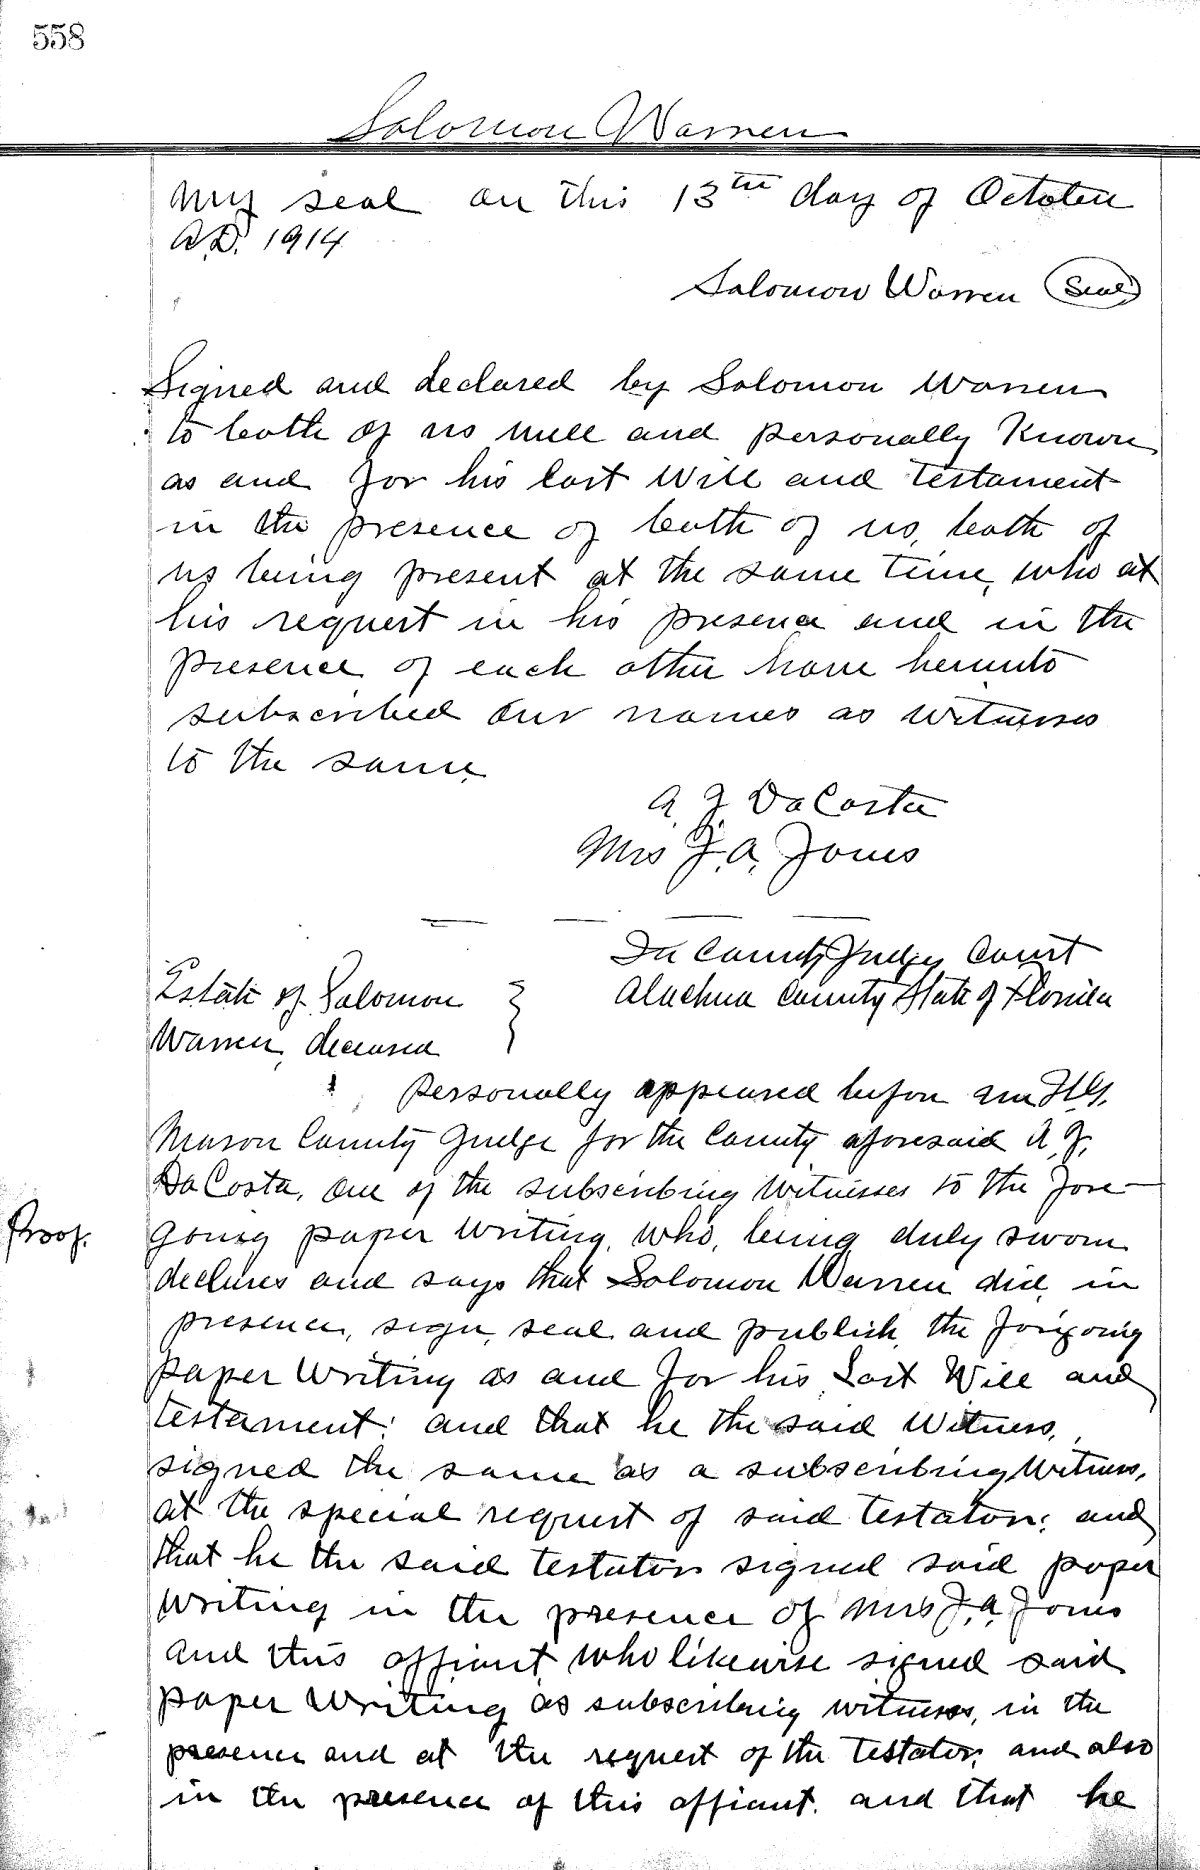 558
Solomon Warren
My seal on this 13th day of October
A.D. 1914
Solomon Warren (Seal)
Signed and declared by Solomon Warren
to both of us well and personally Known
as and for his last Will and testament
in the presence of both of us, both of
us being present at the same time, who at
his request in his presence and in the
presence of each other have hereunto
subscribed our names as witnesses
to the same.
A. J. DaCosta
Mrs J. A. Jones
In County Judges Court
Estate of Solomon } Alachua County State of Florida
Warren, deceased
Personally appeared before me H.G.
Mason County Judge for the County aforesaid A. J.
DaCosta, one of the subscribing witnesses to the fore-
going paper writing, who, being duly sworn
declares and says that Solomon Warren did, in
presence, sign, seal and publish, the forgoing
paper Writing as and for his Last Will and
testament; and that he the said Witness,
signed the same as a subscribing Witness,
at the special request of said testator; and
that he the said testator signed said paper
writing in the presence of Mrs J. A. Jones
and this affiant, who likewise signed said
paper Writing as subscribing witness, in the
presence and at the request of the testator; and also
in the presence of this affiant. and that he
Proof.